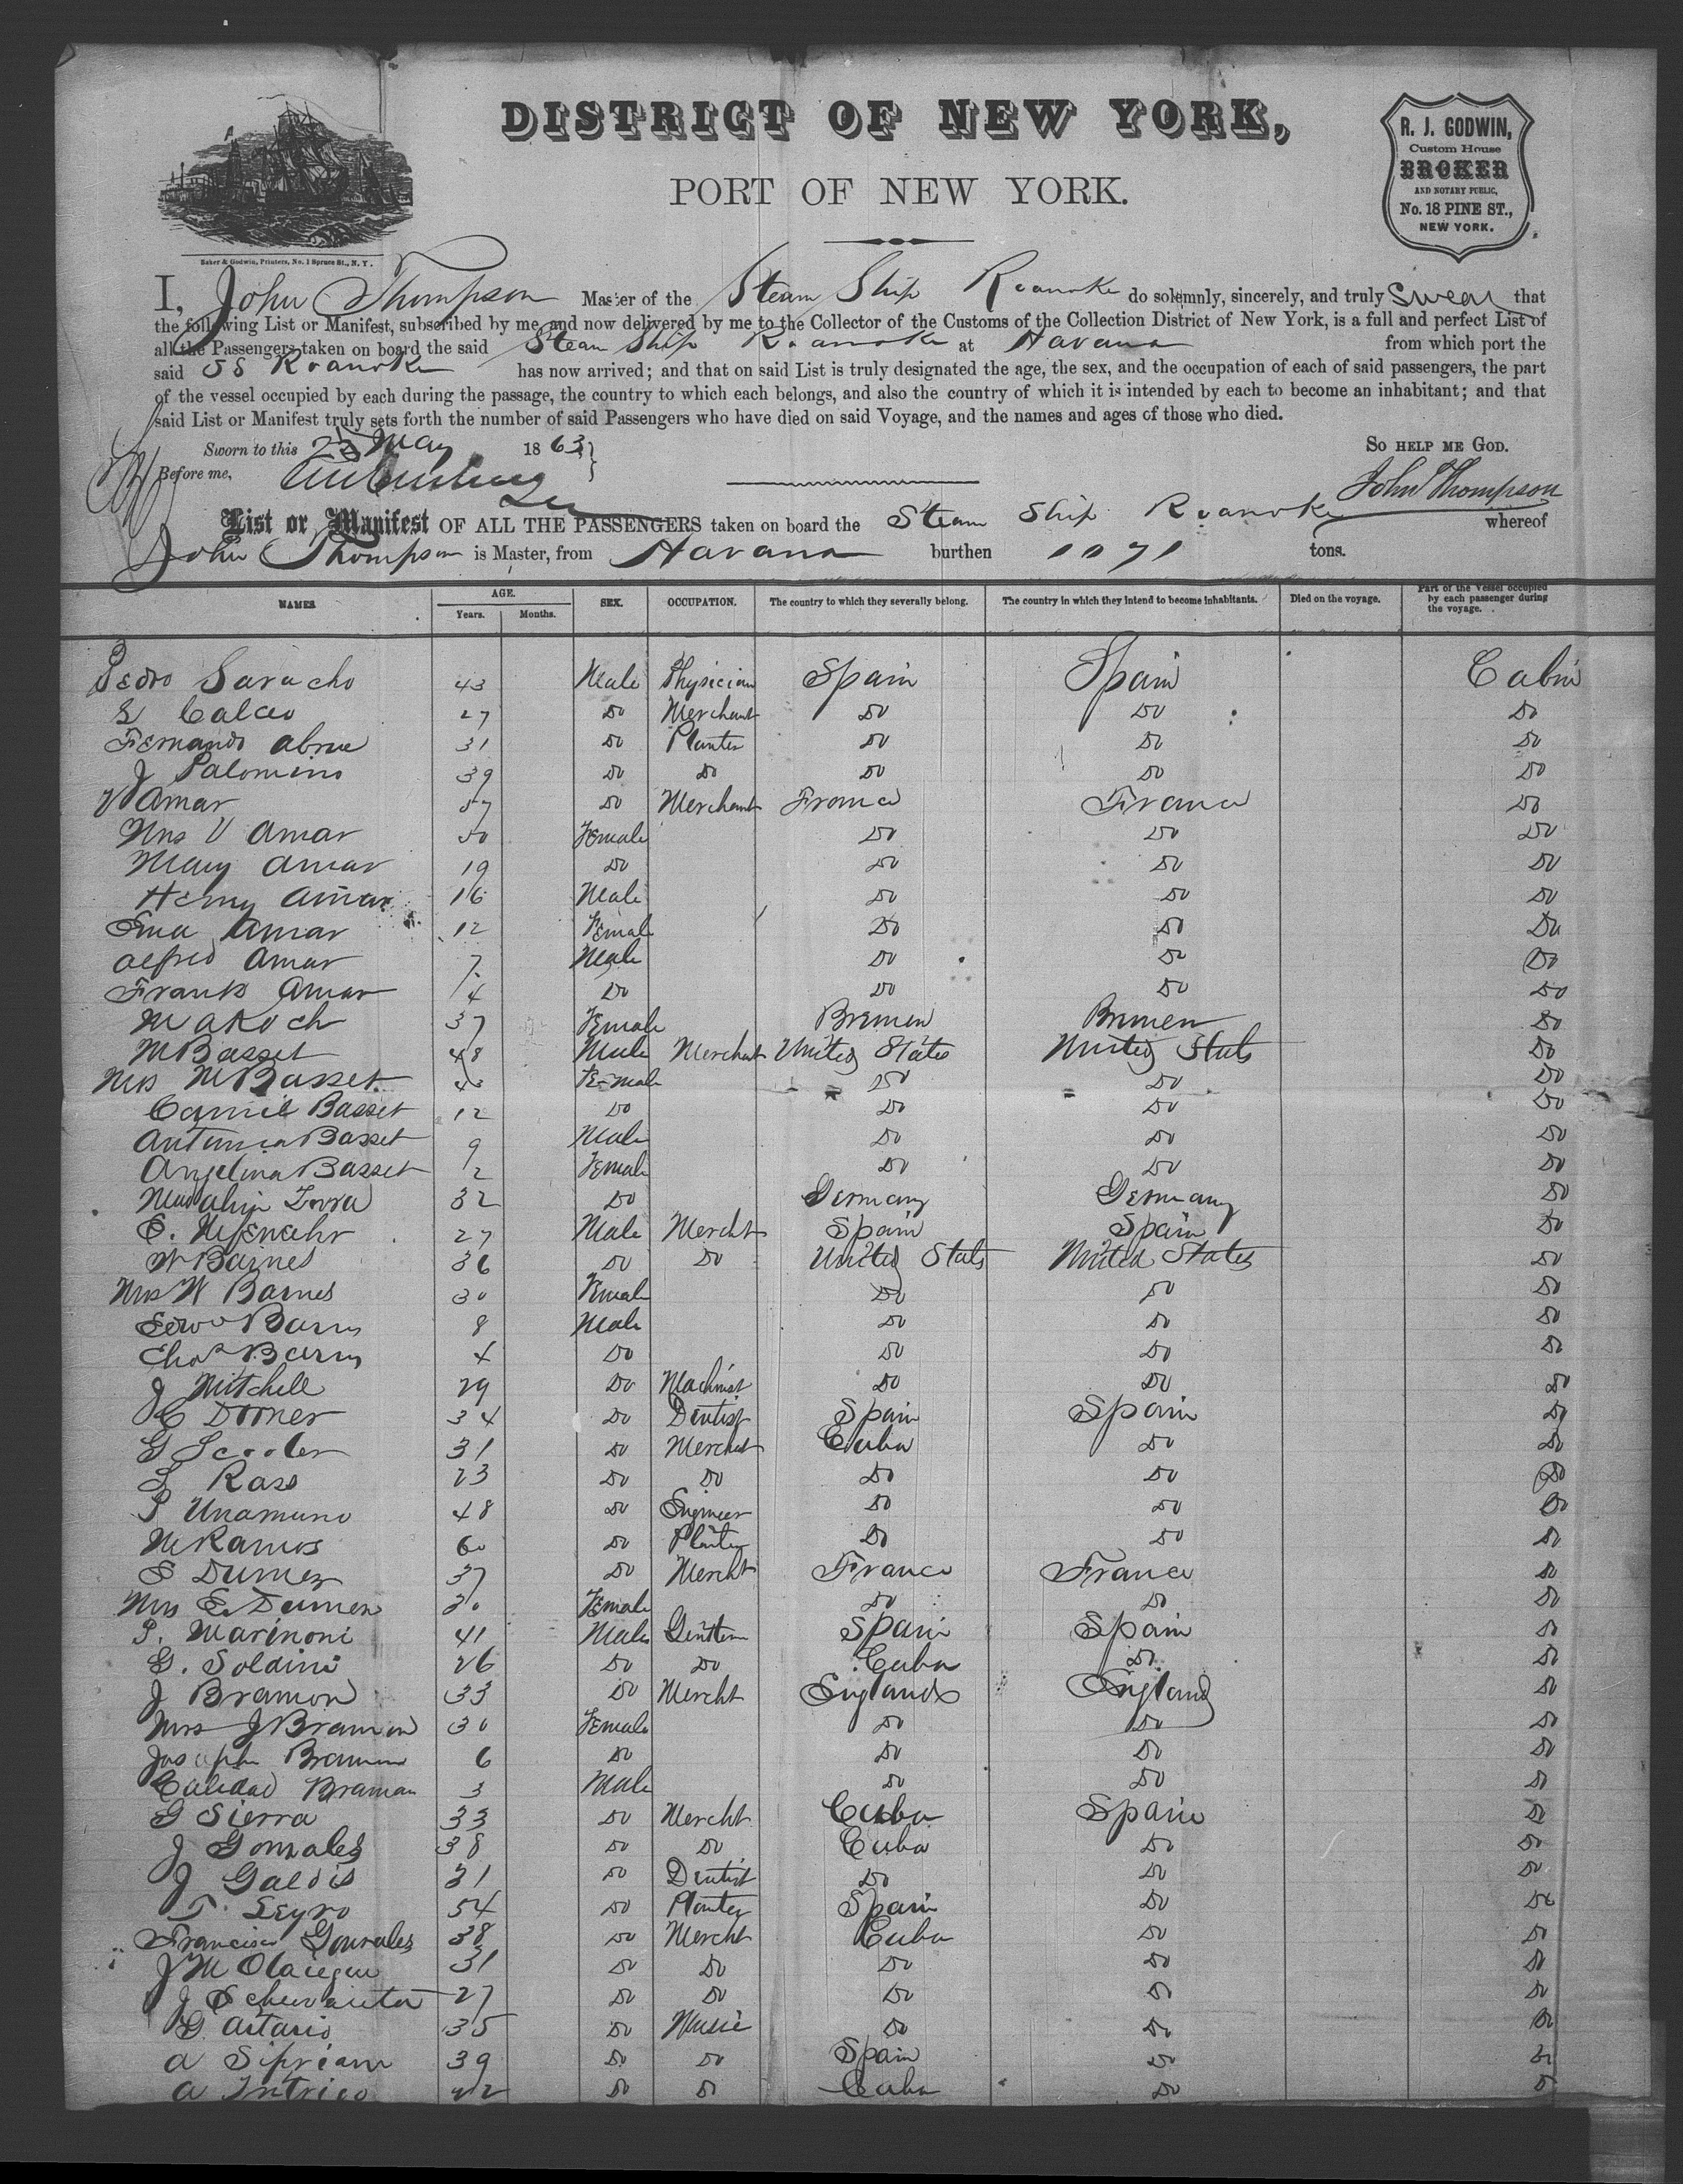 DISTRICT OF NEW YORK,
PORT OF NEW YORK.
R. J. GODWIN,
Custom House
BROKER
AND NOTARY PUBLIC,
No. 18 PINE ST.,
NEW YORK.
Baker & Godwin, Printers, No. 1 Spruce St., N. Y.
I, John Thompson Master of the Steam Ship Roanoke do solemnly, sincerely, and truly swear that
the following List or Manifest, subscribed by me, and now delivered by me to the Collector of the Customs of the Collection District of New York, is a full and perfect List of
all the Passengers taken on board the said Steam Ship Roanoke at Havana from which port the
said SS Roanoke has now arrived; and that on said List is truly designated the age, the sex, and the occupation of each of said passengers, the part
of the vessel occupied by each during the passage, the country to which each belongs, and also the country of which it is intended by each to become an inhabitant; and that
said List or Manifest truly sets forth the number of said Passengers who have died on said Voyage, and the names and ages of those who died.
Sworn to this May 1863 SO HELP ME GOD.
Before me, John Thompson
List or Manifest OF ALL THE PASSENGERS taken on board the Steam Ship Roanoke whereof
John Thompson is Master, from Havana burthen 1071 tons.
NAMES AGE. Years. Months. SEX. OCCUPATION. The country to which they severally belong. The country in which they intend to become inhabitants. Died on the voyage. Part of the Vessel occupied by each passenger during the voyage.
Pedro Saracho 43 Male Physician Spain Spain Cabin
27 Do Merchant Do Do Do
Fernando Abrue 31 Do Planter Do Do Do
J Palomino 39 Do Do Do Do Do
V Amar 57 Do Merchant France France Do
Mrs V Amar 50 Female Do Do Do
Mary Amar 19 Do Do Do Do
Henry Amar 16 Male Do Do Do
Ema Amar 12 Female Do Do Do
Alfred Amar 7 Male Do Do Do
Frank Amar 4 Do Do Do Do
M A Koch 37 Female Bremen Bremen Do
M Basset 48 Male Merchant United States United States Do
Mrs M Basset 43 Female Do Do Do
Camile Basset 12 Do Do Do Do
Antonia Basset 9 Male Do Do Do
Angelina Basset 2 Female Do Do Do
32 Do Germany Germany Do
E. 27 Male Mercht Spain Spain Do
W Barnes 36 Do Do United States United States Do
Mrs W Barnes 30 Female Do Do Do
Barns 8 Male Do Do Do
Chas Barns 4 Do Do Do Do
J Mitchell 29 Do Machinist Do Do Do
34 Do Dentist Spain Spain Do
G Scooler 31 Do Merchat Cuba Do Do
Rass 23 Do Do Do Do Do
P Unamuno 48 Do Engineer Do Do Do
M Ramos 60 Do Planter Do Do Do
E Dumez 37 Do Mercht France France Do
Mrs E. Dumez 30 Female Do Do Do
P. Marinoni 41 Male Gentlem Spain Spain Do
G. Soldini 26 Do Do Cuba Do Do
J Bramon 33 Do Mercht England England Do
Mrs J Bramon 30 Female Do Do Do
Josepha Bramon 6 Do Do Do Do
Bramon 3 Male Do Do Do
G Sierra 33 Do Mercht Cuba Spain Do
J Gonzales 38 Do Do Cuba Do Do
J Galdis 31 Do Dentist Do Do Do
T. Leyro 54 Do Planter Spain Do Do
Francisco Gonzales 38 Do Mercht Cuba Do Do
J M 31 Do Do Do Do Do
J 27 Do Do Do Do Do
G. Astario 35 Do Music Do Do Do
A Sipriani 39 Do Do Spain Do Do
A Intrico 42 Do Do Cuba Do Do